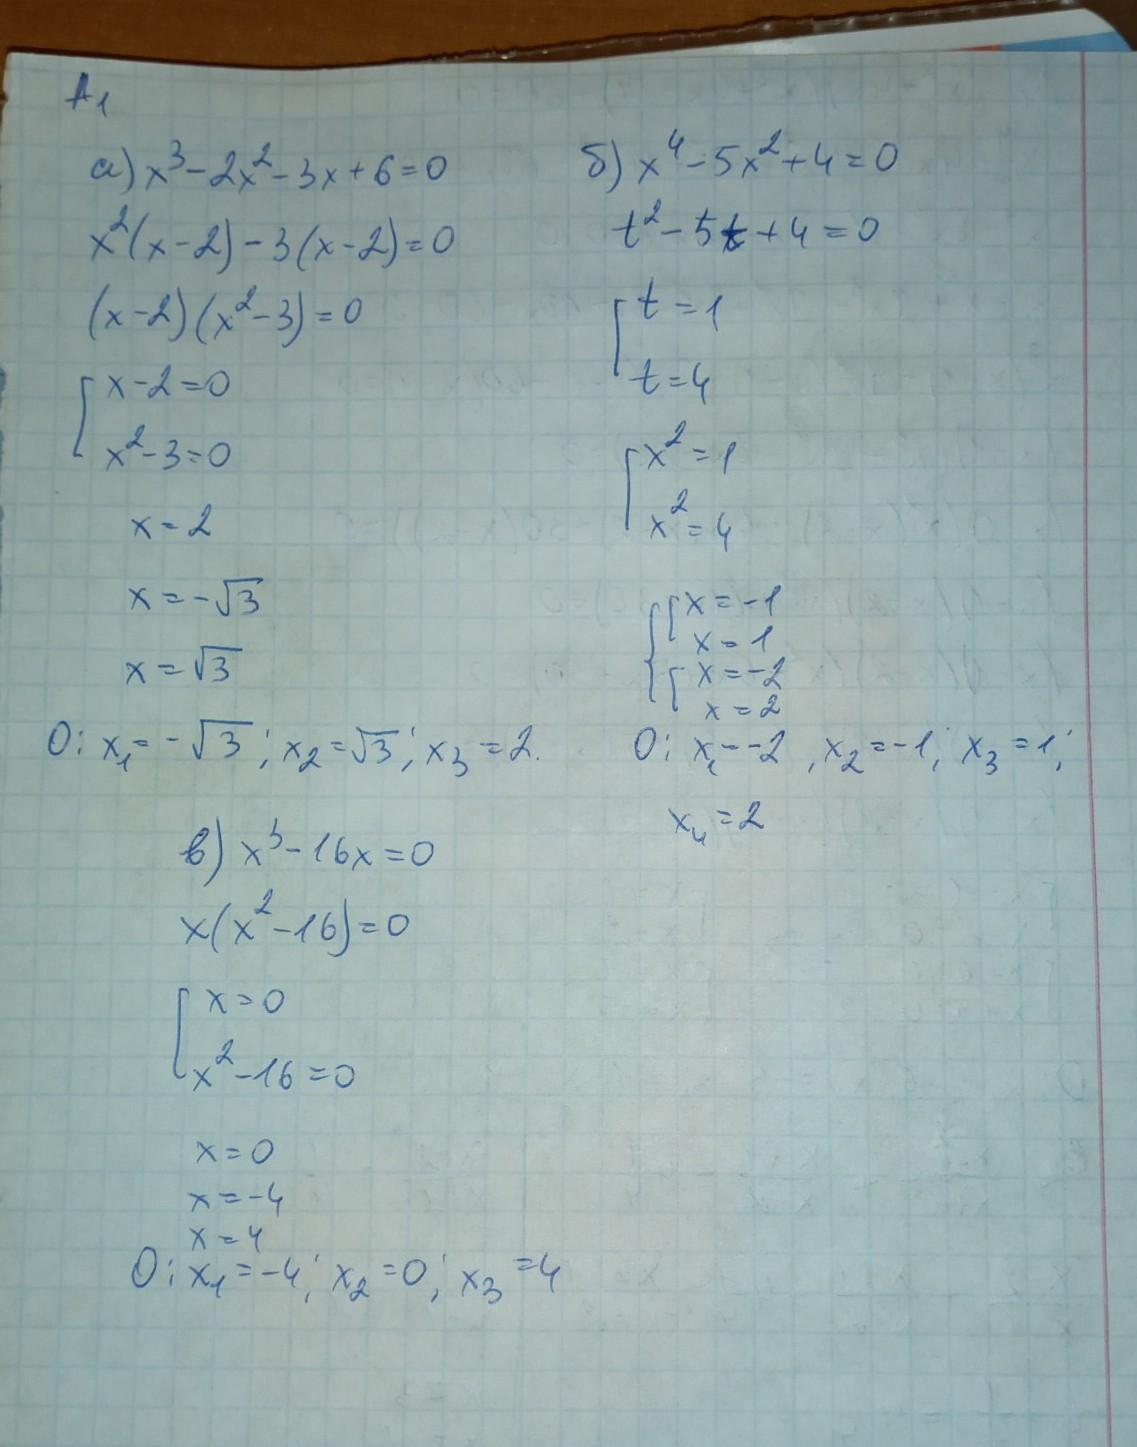 А1
а) x³-2x²-3x+6=0
x²(x-2)-3(x-2)=0
(x-2)(x²-3)=0
x-2=0
x²-3=0
x=2
x=-√3
x=√3
О: x₁=-√3; x₂=√3; x₃=2.
б) x⁴-5x²+4=0
t²-5t+4=0
t=1
t=4
x²=1
x²=4
x=-1
x=1
x=-2
x=2
О: x₁=-2, x₂=-1; x₃=1;
x₄=2
в) x³-16x=0
x(x²-16)=0
x=0
x²-16=0
x=0
x=-4
x=4
О: x₁=-4; x₂=0; x₃=4